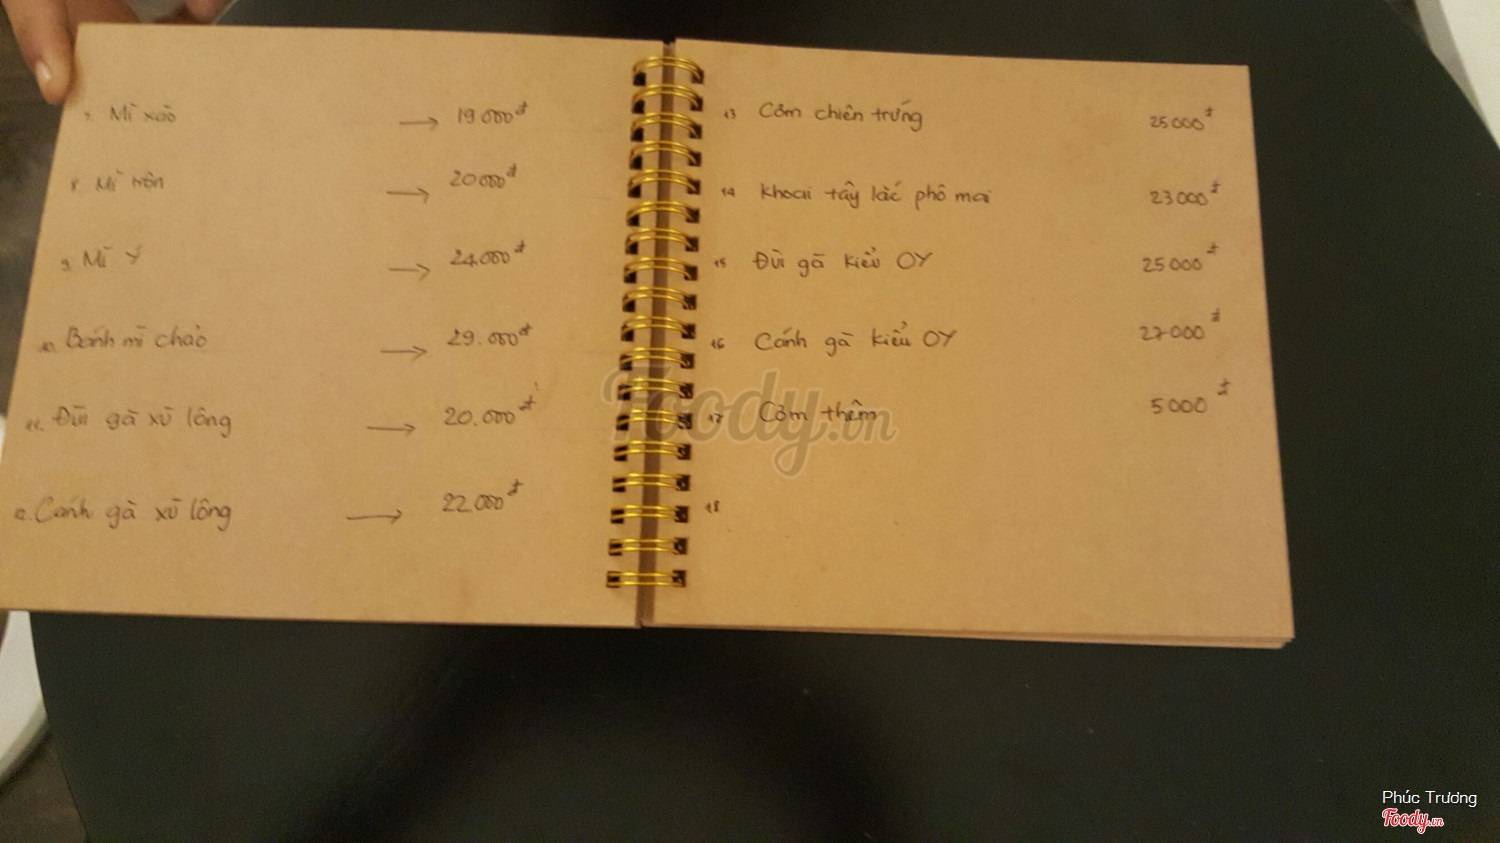 7. Mì xào → 19.000đ
8. Mì trộn → 20.000đ
9. Mì Ý → 24.000đ
10. Bánh mì chảo → 29.000đ
11. Đùi gà xù lông → 20.000đ
12. Cánh gà xù lông → 22.000đ
13 Cơm chiên trứng 25000đ
14 Khoai tây lắc phô mai 23000đ
15 Đùi gà kiểu OY 25000đ
16 Cánh gà kiểu OY 27000đ
17 Cơm thêm 5000đ
18
Foody.vn
Phúc Trương
Foody.vn